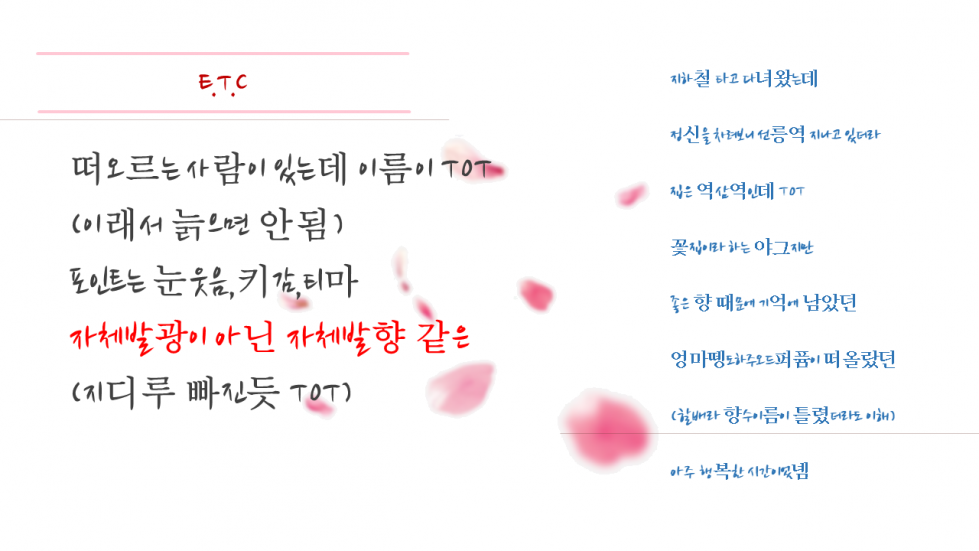 E.T.C
떠오르는 사람이 있는데 이름이 TOT
(이래서 늙으면 안 됨)
포인트는 눈웃음,키감,티마
자체발광이 아닌 자체발향 같은
(지디루 빠진듯 TOT)
지하철 타고 다녀왔는데
정신을 차려보니 선릉역 지나고 있더라
집은 역삼역인데 TOT
꽃집이라 하는 야그지만
좋은 향 때문에 기억에 남았던
엉마뗑도하주오드퍼퓸이 떠올랐던
(할배라 향수이름이 틀렸더라도 이해)
아주 행복한 시간이었넴